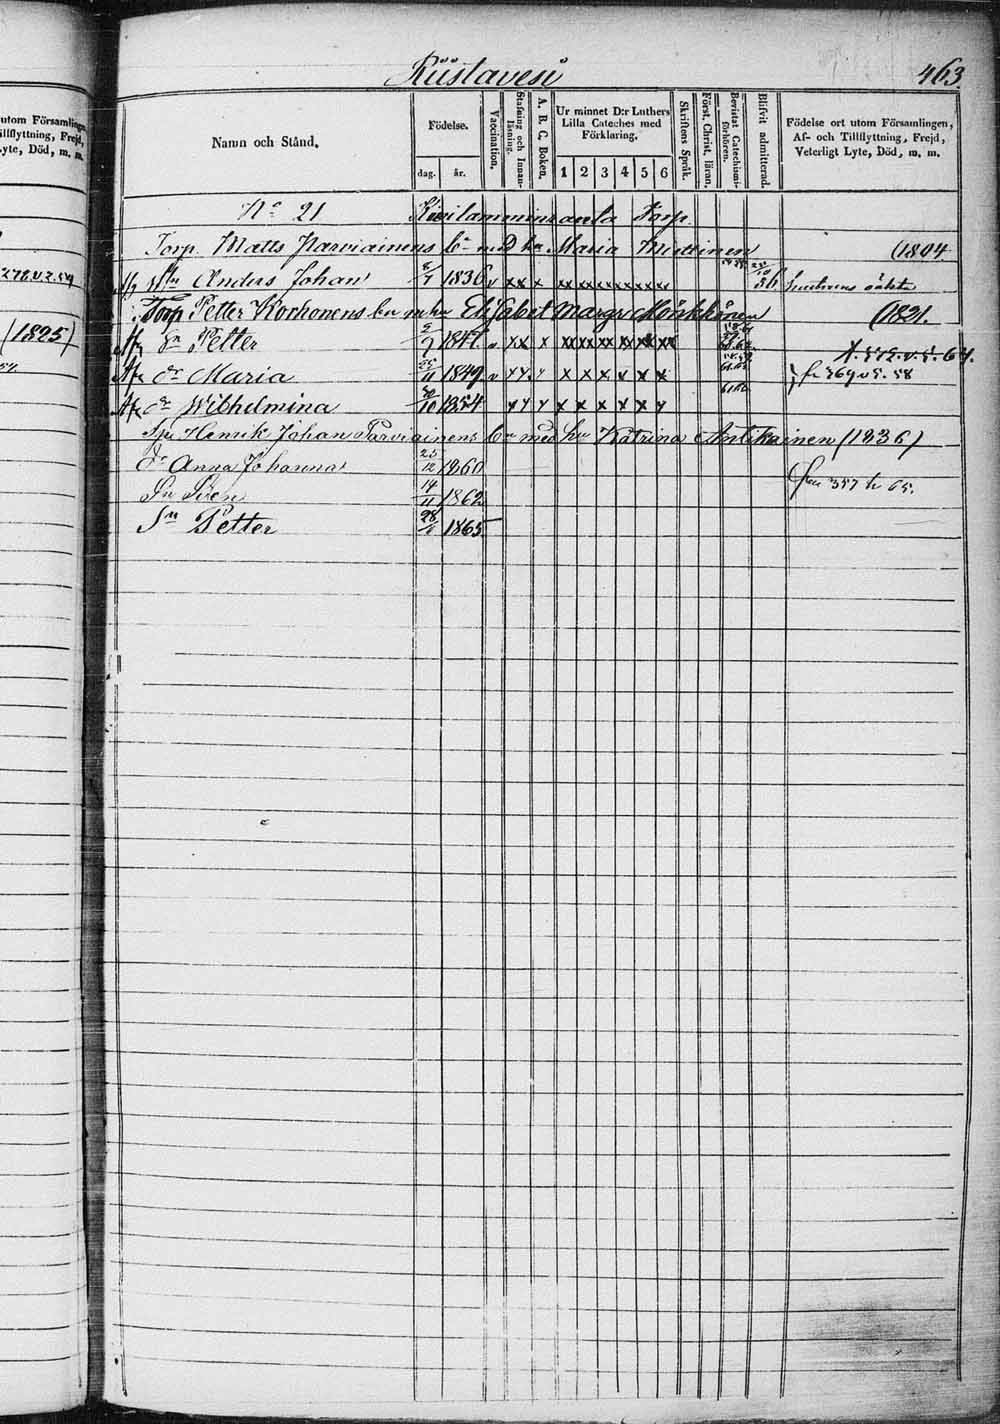 Rüstavesi 463.
utom Församlingen,
Tillflyttning, Frejd,
Lyte, Död, m. m.
278.v.2.59
(1825)
Namn och Stånd.
Födelse.
dag. år.
Vaccination.
Stafning och Innanläsning.
A. B. C. Boken.
Ur minnet D:r Luthers
Lilla Cateches med
Förklaring.
1 2 3 4 5 6
Skriftens Språk.
Först. Christ. läran.
Bevistat Catechismiförhören.
Blifvit admitterad.
Födelse ort utom Församlingen,
Af- och Tillflyttning, Frejd,
Veterligt Lyte, Död, m. m.
No 21 Torp.
Torp. Matts Parviainens bn med hu Maria (1804
Anders Johan 8/7 1836 v xx x x x x x x x 56
Torp Petter Korhonens bn m hu Elisabet Margr Mönkkönen (1821.
Sn Petter 1847. v xx x xx xx xx xx xx xx
dr Maria 1849. v x x x x x x x x x fr 369 v 5. 58
dr Wilhelmina 20/10 1854 x x x x x x x x x
Henrik Johan Parviainens bn med hu Katrina Antikainen (1836)
dr Anna Johanna 25/12 1860
Sn 14/11 1862 från 357 h 65.
Sn Petter 1865